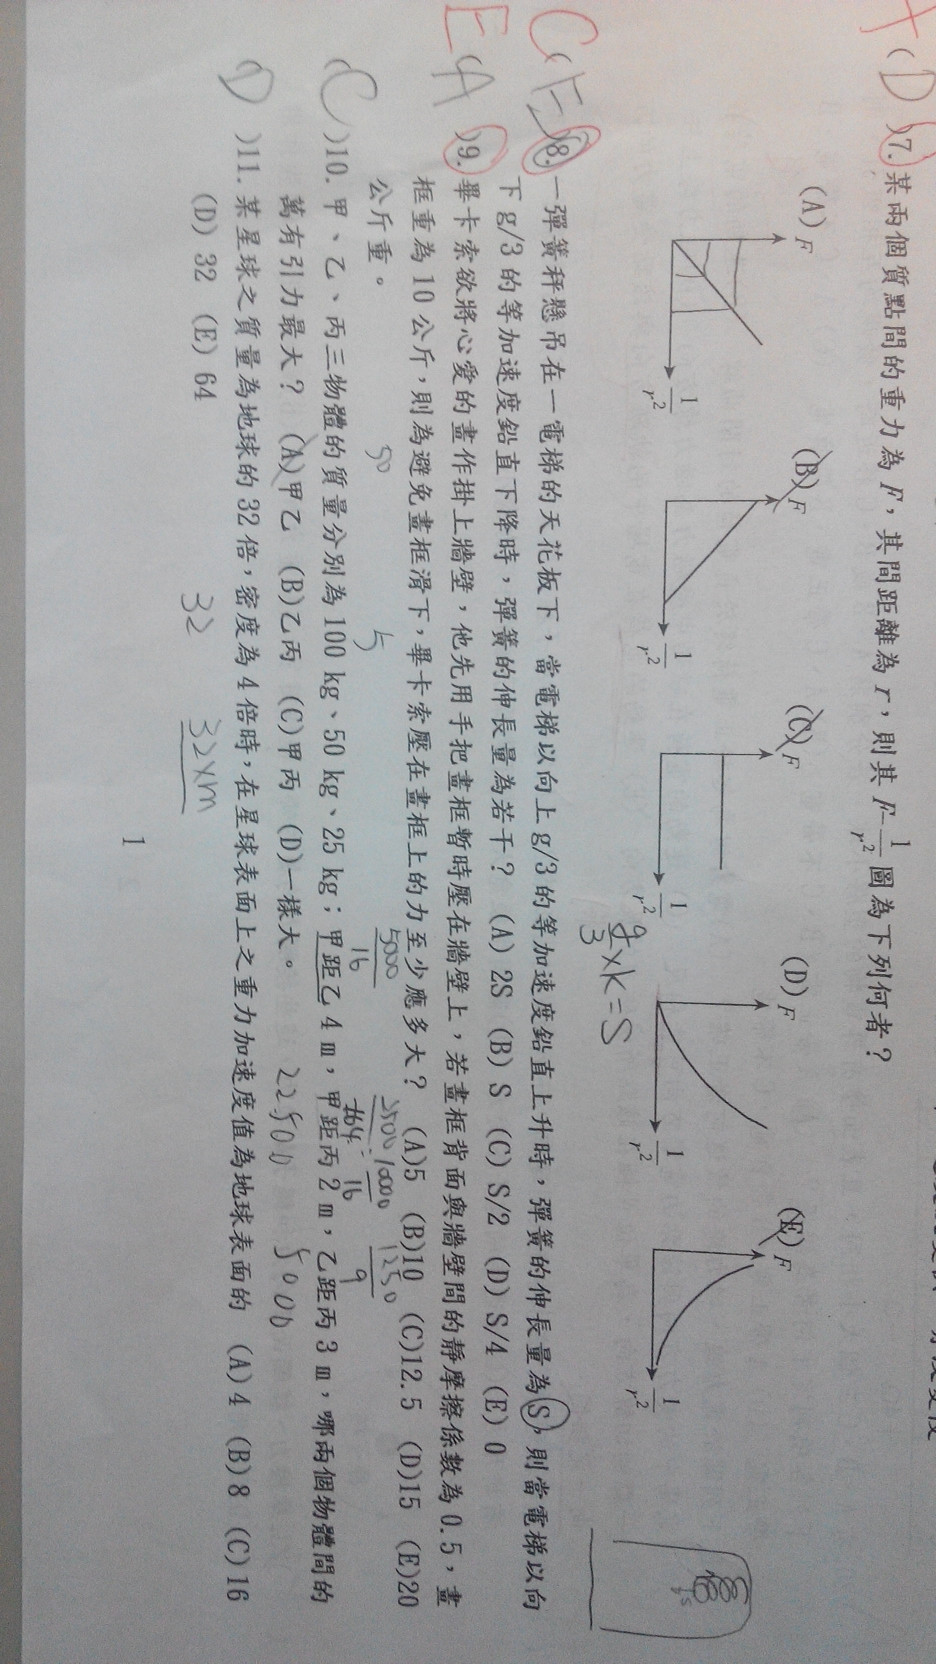 A
(D)7. 某兩個質點間的重力為 F，其間距離為 r，則其 F-1/r² 圖為下列何者？
(A) F 1/r² (B) F 1/r² (C) F 1/r² (D) F 1/r² (E) F 1/r²
g/3 × k = S
C
(E)8. 一彈簧秤懸吊在一電梯的天花板下，當電梯以向上 g/3 的等加速度鉛直上升時，彈簧的伸長量為 S，則當電梯以向
下 g/3 的等加速度鉛直下降時，彈簧的伸長量為若干？ (A) 2S (B) S (C) S/2 (D) S/4 (E) 0
E
(A)9. 畢卡索欲將心愛的畫作掛上牆壁，他先用手把畫框暫時壓在牆壁上，若畫框背面與牆壁間的靜摩擦係數為 0.5，畫
框重為 10 公斤，則為避免畫框滑下，畢卡索壓在畫框上的力至少應多大？ (A)5 (B)10 (C)12.5 (D)15 (E)20
公斤重。
50 5 5000/16 1250/9
(C)10. 甲、乙、丙三物體的質量分別為 100 kg、50 kg、25 kg；甲距乙 4 m，甲距丙 2 m，乙距丙 3 m，哪兩個物體間的
萬有引力最大？ (A)甲乙 (B)乙丙 (C)甲丙 (D)一樣大。
22500 5000
(D)11. 某星球之質量為地球的 32 倍，密度為 4 倍時，在星球表面上之重力加速度值為地球表面的 (A)4 (B)8 (C)16
(D) 32 (E) 64
32 32×m
1